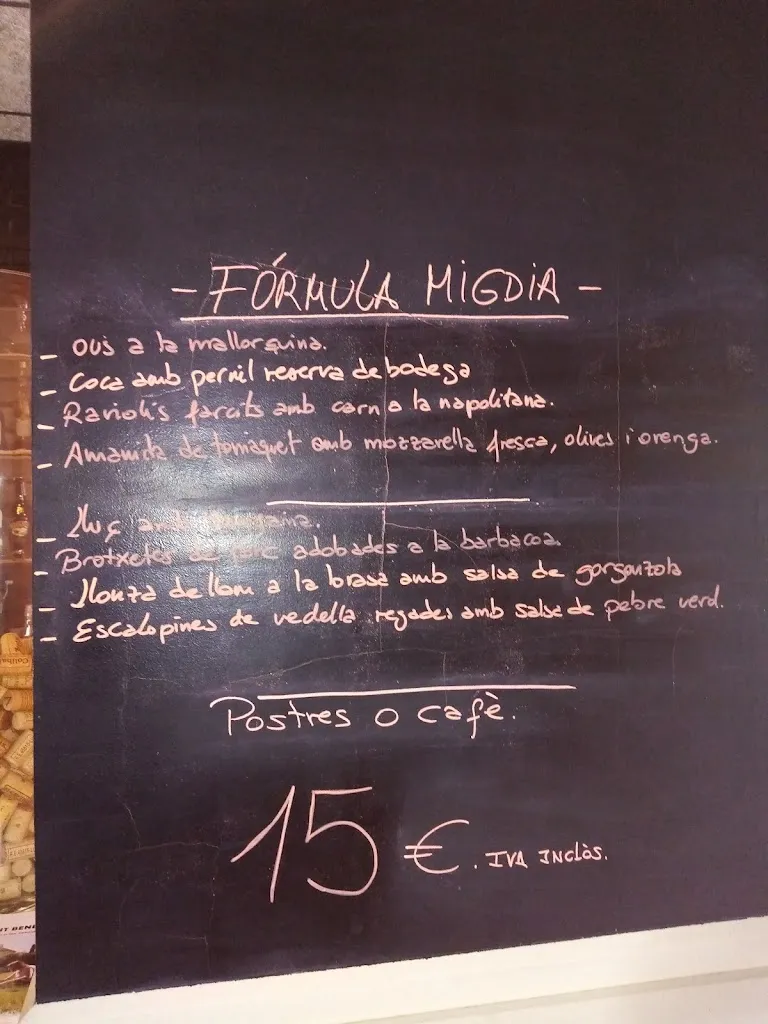 - FÓRMULA MIGDIA -
- OUS a la mallorquina.
- Coca amb pernil reserva de bodega
- Raviolis farcits amb carn a la napolitana.
- Amanida de tomaquet amb mozzarella fresca, olives i orenga.
- Lluç amb
- Brotxetes de porc adobades a la barbacoa.
- Llonza de llom a la brasa amb salsa de gorgonzola
- Escalopines de vedella regades amb salsa de pebre verd.
Postres o cafè.
15 €. IVA INCLÒS.